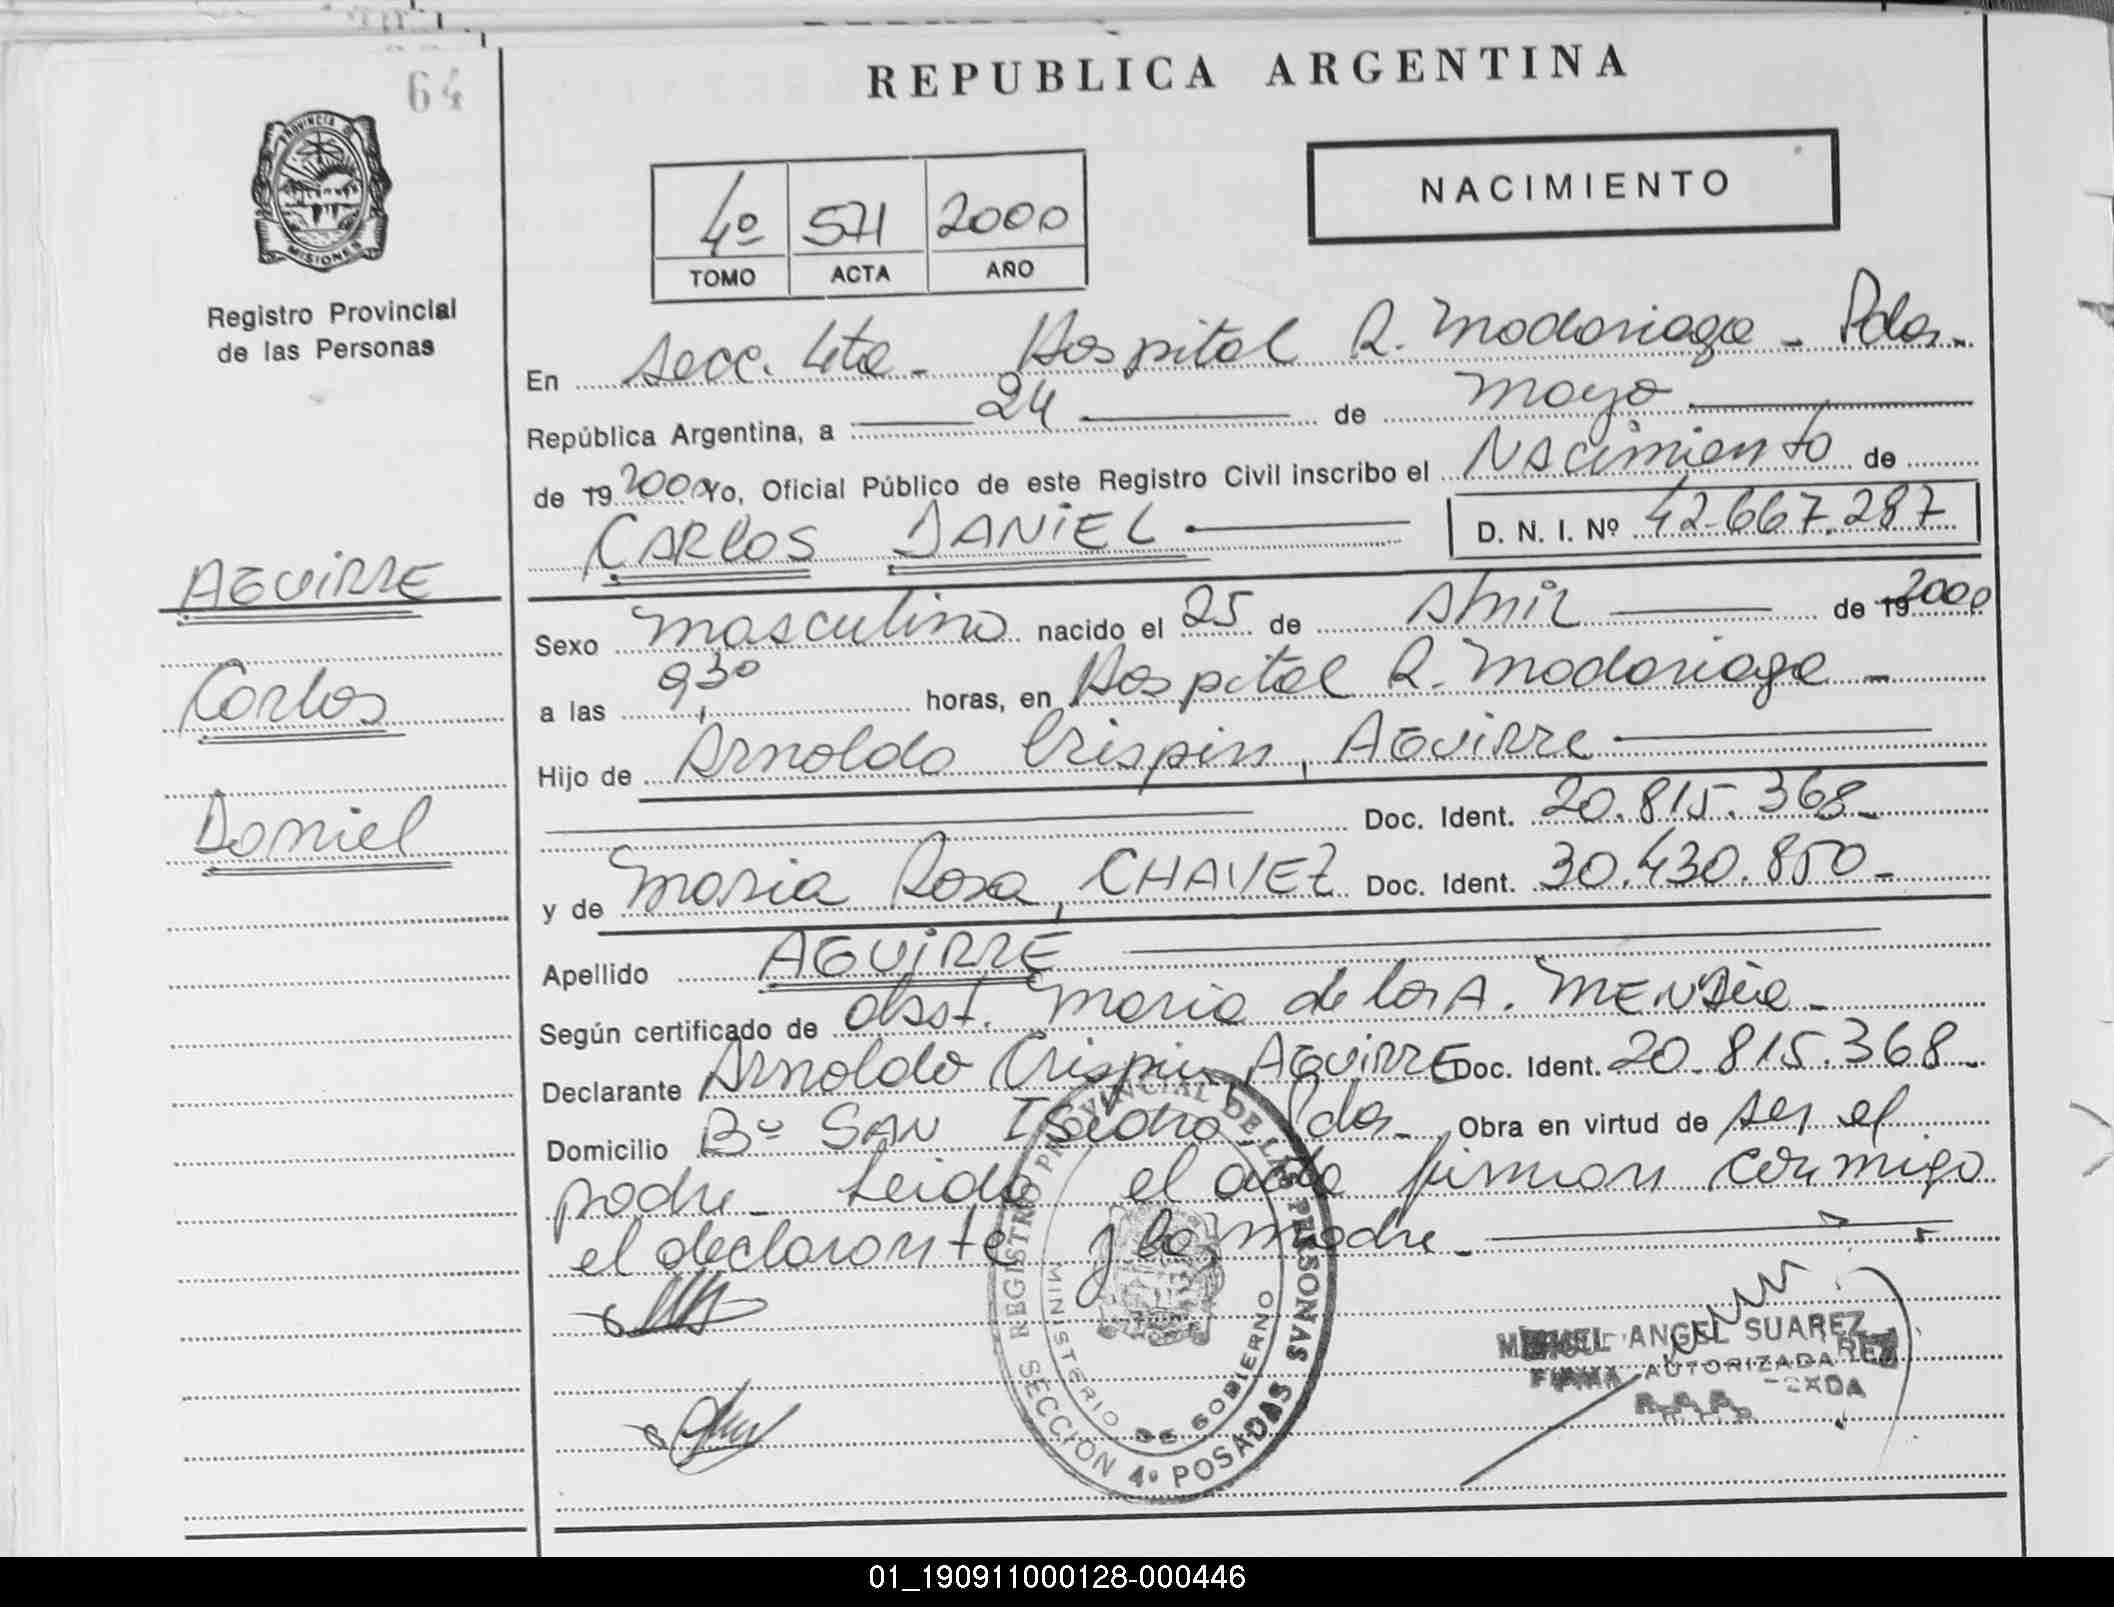 64
REPUBLICA ARGENTINA
PROVINCIA DE
MISIONES
Registro Provincial
de las Personas
4º 571 2000
TOMO ACTA AÑO
NACIMIENTO
En Secc. 4ta - Hospital R. Madariaga - Pdas -
República Argentina, a 24 de Mayo
de 19 2000 Yo, Oficial Público de este Registro Civil inscribo el Nacimiento de
CARLOS DANIEL D. N. I. Nº 42.667.287
AGUIRRE
Carlos
Daniel
Sexo Masculino nacido el 25 de Abril de 19 2000
a las 9,30 horas, en Hospital R. Madariaga -
Hijo de Arnoldo Crispin, AGUIRRE
Doc. Ident. 20.815.368 -
y de Maria Rosa, CHAVEZ Doc. Ident. 30.430.850 -
Apellido AGUIRRE
Según certificado de obst. Maria de los A. -
Declarante Arnoldo Crispin AGUIRRE Doc. Ident. 20.815.368 -
Domicilio Bº SAN Isidro - Pdas - Obra en virtud de ser el
padre - Leida el acta firman conmigo
el declarante y la madre -
REGISTRO PROVINCIAL DE LAS PERSONAS
MINISTERIO DE GOBIERNO
SECCIÓN 4º POSADAS
MIGUEL ANGEL SUAREZ
FIRMA AUTORIZADA
R.P.P.
01_190911000128-000446